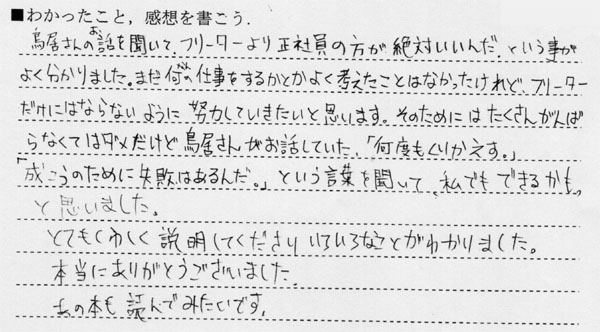 ■わかったこと，感想を書こう．
鳥居さんのお話を聞いて、フリーターより正社員の方が絶対いいんだ、という事が
よく分かりました。まだ何の仕事をするかとかよく考えたことはなかったけれど、フリーター
だけにはならないように努力していきたいと思います。そのためにはたくさんがんば
らなくてはダメだけど鳥居さんがお話していた、「何度もくりかえす。」
「成こうのために失敗はあるんだ。」という言葉を聞いて、私でもできるかも
と思いました。
とてもくわしく説明してくださりいろいろなことがわかりました。
本当にありがとうございました。
あの本も読んでみたいです。